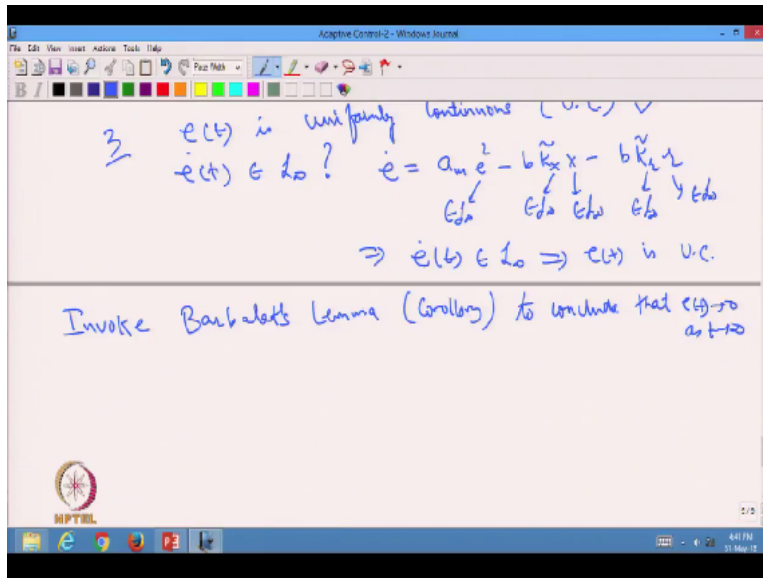 Adaptive Control-2 - Windows Journal
File Edit View Insert Actions Tools Help
Page Width
B I
3 e(t) is uniformly continuous (U.C)
ė(t) ∈ L∞ ? ė = aₘ e - b k̃ₓ x - b k̃ᵣ r
∈L∞ ∈L∞ ∈L∞ ∈L∞ ∈L∞
⇒ ė(t) ∈ L∞ ⇒ e(t) is U.C.
Invoke Barbalat's Lemma (Corollary) to conclude that e(t)→0
as t→∞
NPTEL
5/5
4:41 PM
31-May-18